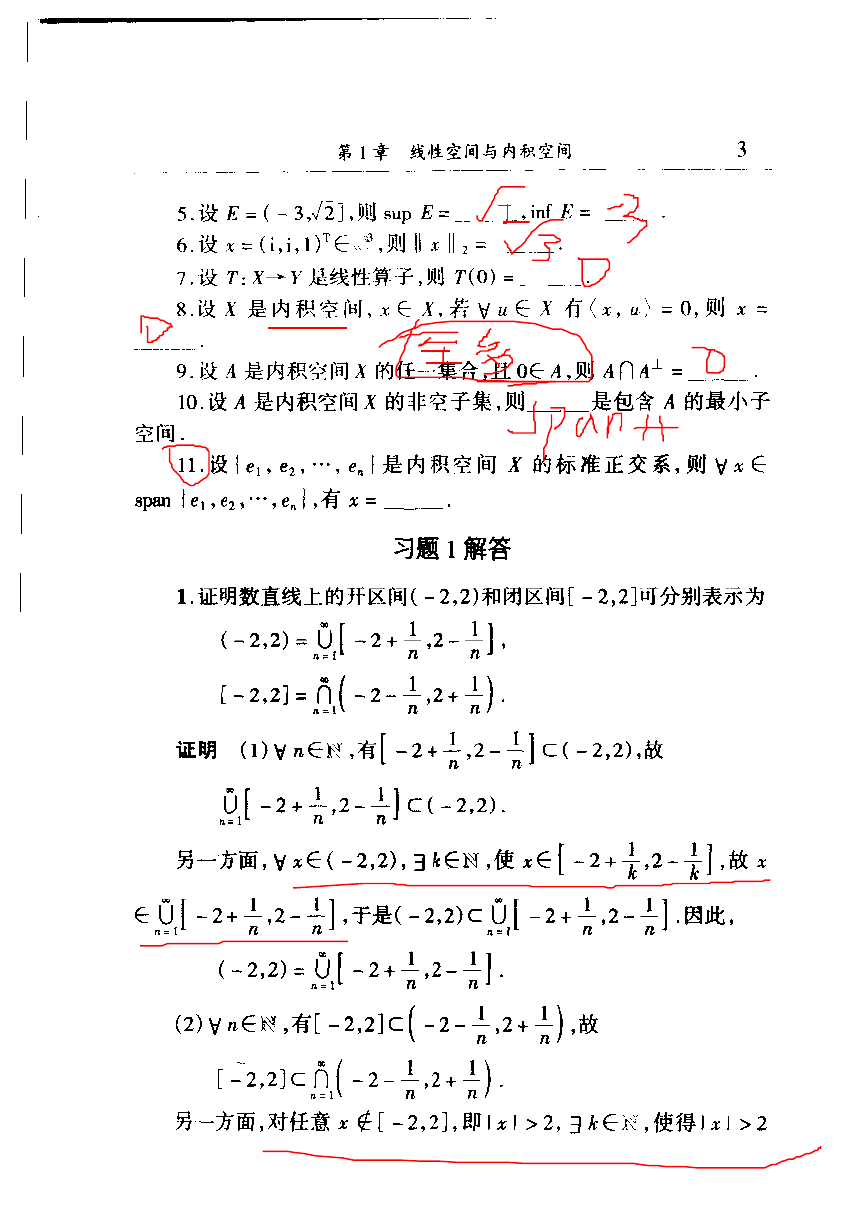 第1章 线性空间与内积空间 3
5.设 E=(-3,√2],则 sup E= √2 ,inf E= -3 .
6.设 x=(i,i,1)ᵀ∈ℂ³,则‖x‖₂= √3 .
7.设 T:X→Y 是线性算子,则 T(0)= 0 .
8.设 X 是内积空间, x∈X,若 ∀u∈X 有⟨x, u⟩=0,则 x=
0 .
9.设 A 是内积空间 X 的任一集合,且 0∈A,则 A∩A^⊥= 0 .
10.设 A 是内积空间 X 的非空子集,则 span A 是包含 A 的最小子
空间.
11.设{e₁,e₂,⋯,eₙ}是内积空间 X 的标准正交系,则 ∀x∈
span {e₁,e₂,⋯,eₙ},有 x= ____ .
习题1解答
1.证明数直线上的开区间(-2,2)和闭区间[-2,2]可分别表示为
(-2,2)=⋃_{n=1}^{∞}[-2+1/n,2-1/n],
[-2,2]=⋂_{n=1}^{∞}(-2-1/n,2+1/n).
证明 (1)∀n∈ℕ,有[-2+1/n,2-1/n]⊂(-2,2),故
⋃_{n=1}^{∞}[-2+1/n,2-1/n]⊂(-2,2).
另一方面,∀x∈(-2,2),∃k∈ℕ,使 x∈[-2+1/k,2-1/k],故 x
∈⋃_{n=1}^{∞}[-2+1/n,2-1/n],于是(-2,2)⊂⋃_{n=1}^{∞}[-2+1/n,2-1/n].因此,
(-2,2)=⋃_{n=1}^{∞}[-2+1/n,2-1/n].
(2)∀n∈ℕ,有[-2,2]⊂(-2-1/n,2+1/n),故
[-2,2]⊂⋂_{n=1}^{∞}(-2-1/n,2+1/n).
另一方面,对任意 x∉[-2,2],即|x|>2,∃k∈ℕ,使得|x|>2